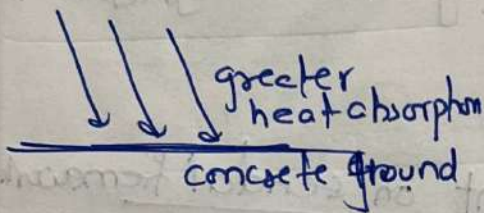 greater
heat absorption
concrete ground